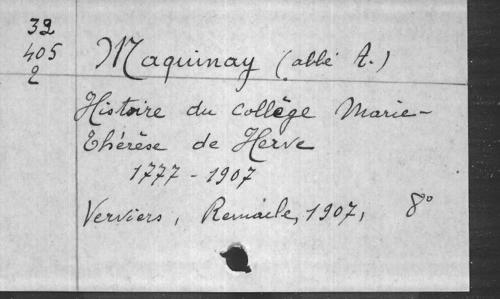 32
405
2
Maquinay (abbé A.)
Histoire du collège Marie-
Thérèse de Herve
1777 - 1907
Verviers, Remacle, 1907, 8°